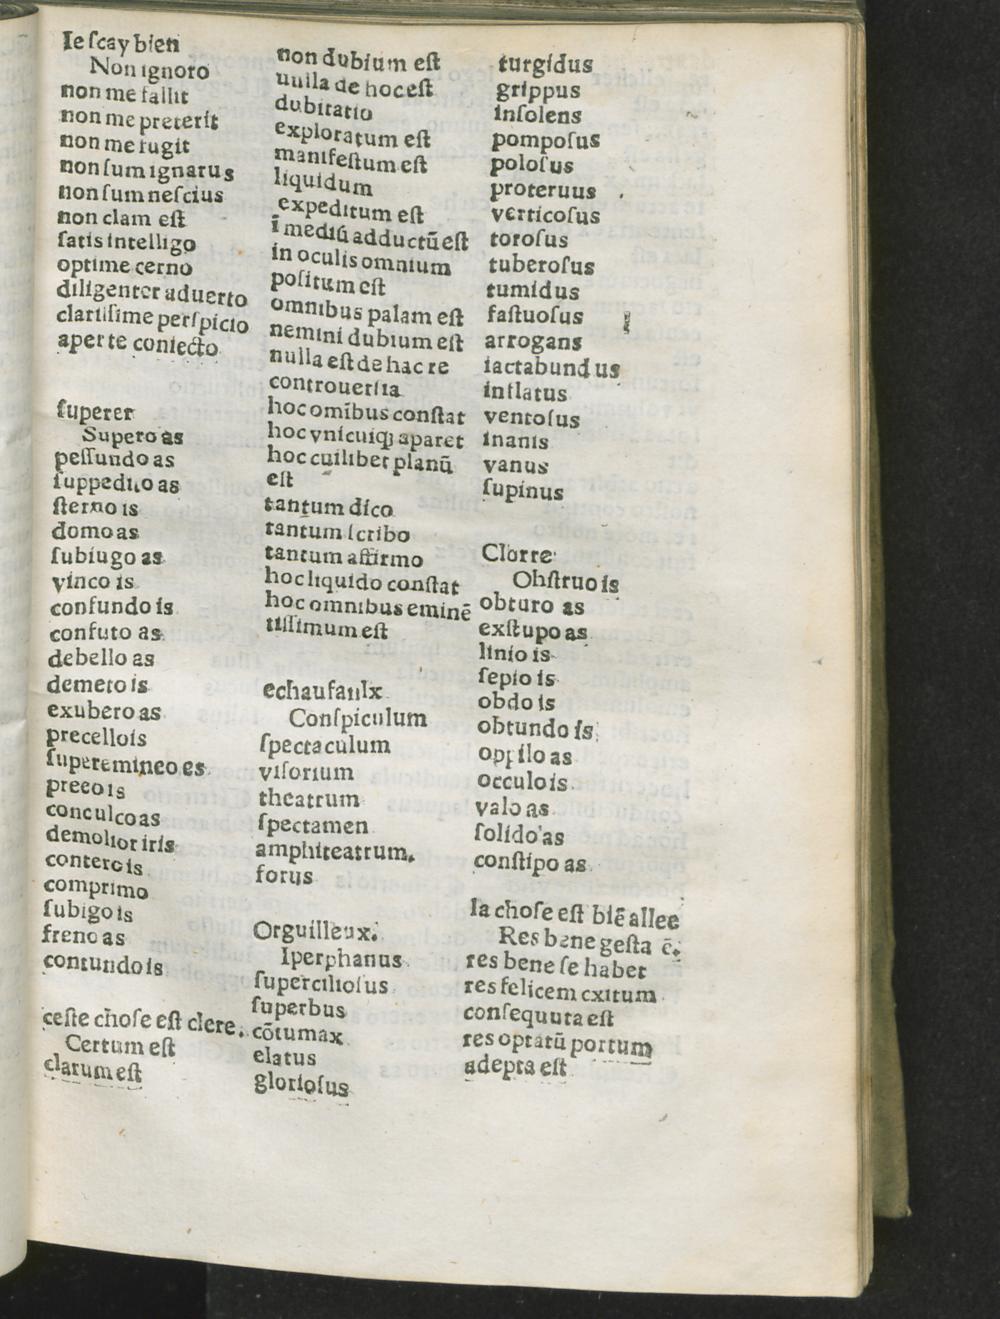 Ie ſcay bien
Non ignoro
non me fallit
non me preterit
non me fugit
non ſum ignarus
non ſum neſcius
non clam eſt
ſatis intelligo
optime cerno
diligenter aduerto
clariſſime perſpicio
aperte coniecto
ſuperer
Supero as
peſſundo as
ſuppedito as
ſterno is
domo as
ſubiugo as
vinco is
confundo is
confuto as
debello as
demeto is
exubero as
precello is
ſuperemineo es
preeo is
conculco as
demolior iris
contero is
comprimo
ſubigo is
freno as
contundo is
ceſte choſe eſt clere.
Certum eſt
clarum eſt
non dubium eſt
nulla de hoc eſt
dubitatio
exploratum eſt
manifeſtum eſt
liquidum
expeditum eſt
ī mediū adductū eſt
in oculis omnium
poſitum eſt
omnibus palam eſt
nemini dubium eſt
nulla eſt de hac re
controuerſia
hoc omībus conſtat
hoc vnicuiqꝫ aparet
hoc cuilibet planū
eſt
tantum dico
tantum ſcribo
tantum affirmo
hoc liquido conſtat
hoc omnibus eminē
tiſſimum eſt
echaufaulx
Conſpiculum
ſpectaculum
viſorium
theatrum
ſpectamen
amphiteatrum.
forus
Orguilleux.
Iperphanus
ſupercilioſus
ſuperbus
cōtumax
elatus
glorioſus
turgidus
grippus
inſolens
pompoſus
poloſus
proteruus
verticoſus
toroſus
tuberoſus
tumidus
faſtuoſus
arrogans
iactabundus
inflatus
ventoſus
inanis
vanus
ſupinus
Clorre
Obſtruo is
obturo as
exſtupo as
linio is
ſepio is
obdo is
obtundo is
oppilo as
occulo is
valo as
ſolido as
conſtipo as
la choſe eſt biē allee
Res bene geſta ē.
res bene ſe habet
res felicem exitum
conſequuta eſt
res optatū portum
adepta eſt